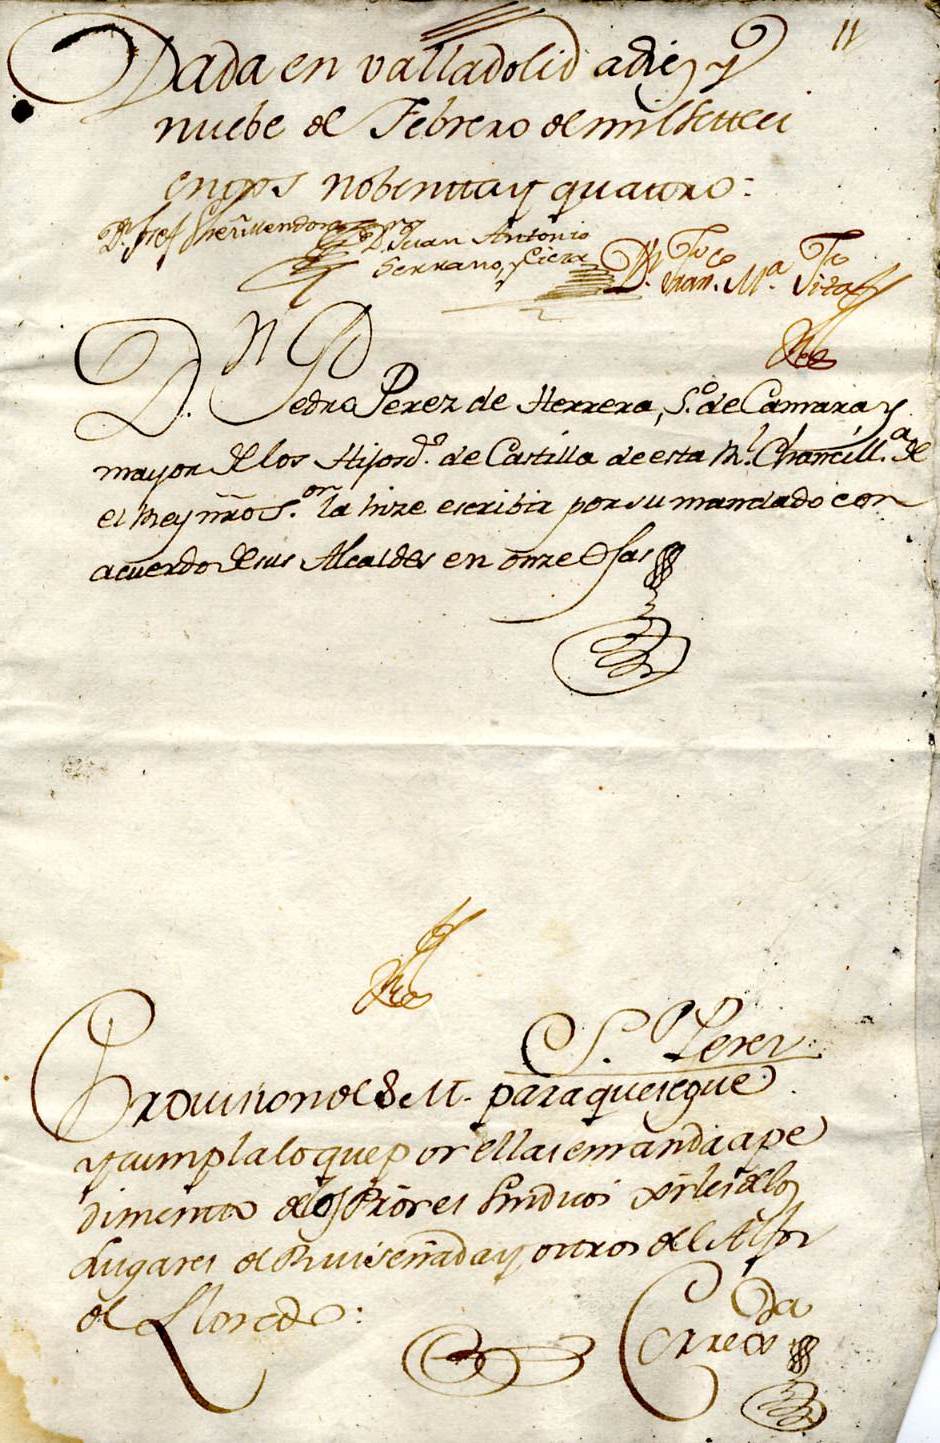 11
Dada en valladolid a diez y
nuebe de Febrero de mil settezi
entos nobentta y quattro:
Dn. Juan Antonio
Serrano, y Cieza
Dn. Fran.co M.a
Dn. Pedro Perez de Herrera, S.o de Camara y
mayor de los Hijosd.o de Castilla de esta Rl. Chancill.a de
el Rey nro S.or la hize escribir por su mandado con
acuerdo de sus Alcaldes en onze ofas
S. Perez
Provision de S. M. para que se gue
y cumpla lo que por ella se manda a pe
dimento de los Priores Sindicos grles de los
Lugares de Ruiseñada y otros del Alfoz
de Lloredo:
Corre da